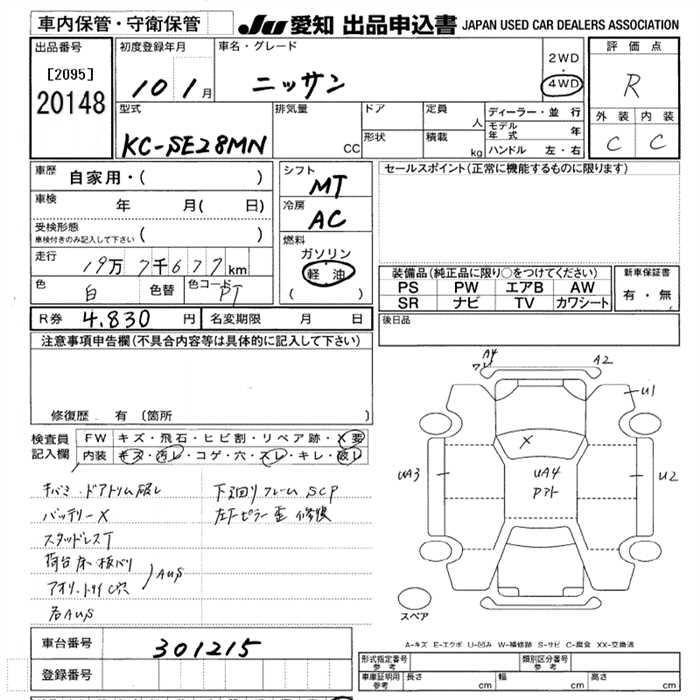 車内保管・守衛保管
JU 愛知 出品申込書 JAPAN USED CAR DEALERS ASSOCIATION
出品番号
[2095]
20148
初度登録年月
10 1月
車名・グレード
ニッサン
2WD
・
4WD
評価点
R
外装 内装
C C
型式
KC-SE28MN
排気量
CC
ドア
形状
定員
人
積載
kg
ディーラー・並行
モデル年式 年
ハンドル 左・右
車歴
自家用・( )
車検
年 月( 日)
受検形態
車検付きのみ記入して下さい ( )
走行
19万7千677km
色
白
色替
色コード
PT
シフト
MT
冷房
AC
燃料
ガソリン
軽油
( )
セールスポイント(正常に機能するものに限ります)
装備品(純正品に限り○をつけてください)
PS PW エアB AW
SR ナビ TV カワシート
新車保証書
有・無
R券 4.830円
名変期限 月 日
後日品
注意事項申告欄(不具合内容等は具体的に記入して下さい)
修復歴 有(箇所 )
検査員記入欄
FW キズ・飛石・ヒビ割・リペア跡・X要
内装 キズ・汚レ・コゲ・穴・スレ・キレ・破レ
キバミ・ドアトリム破レ
バッテリーX
スタッドレスT
荷台床板バリ
C穴
AUS
各AUS
下回リフレームSCP
左F.ピラー歪 修復
A4
ワレ
A2
U1
X
UA3
UA4
U2
スペア
A-キズ E-エクボ U-凹み W-補修跡 S-サビ C-腐食 XX-交換済
車台番号
301215
登録番号
形式指定番号
参考
類別区分番号
参考
車庫証明用
参考
長さ cm
幅 cm
高さ cm